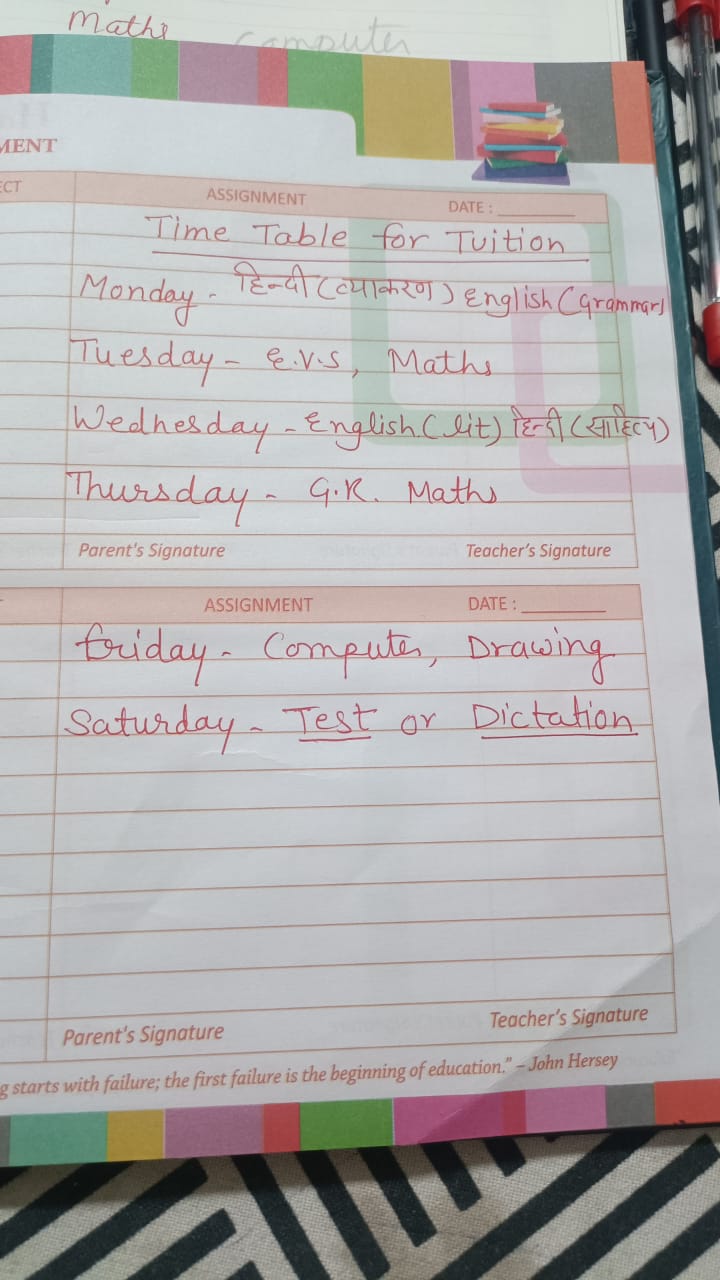 Maths
computer
MENT
ECT ASSIGNMENT DATE :
Time Table for Tuition
Monday - हिन्दी (व्याकरण) English (Grammar)
Tuesday - E.V.S, Maths
Wednesday - English (lit) हिन्दी (साहित्य)
Thursday - G.K. Maths
Parent's Signature Teacher's Signature
ASSIGNMENT DATE :
friday - Computer, Drawing
Saturday - Test or Dictation
Parent's Signature Teacher's Signature
g starts with failure; the first failure is the beginning of education." – John Hersey